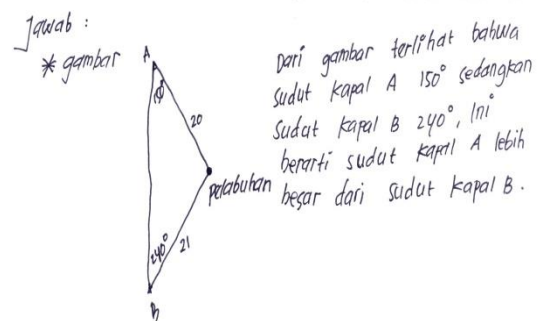 Jawab :
* gambar
A
20
pelabuhan
240°
21
B
Dari gambar terlihat bahwa
sudut kapal A 150° sedangkan
sudut kapal B 240°, Ini
berarti sudut kapal A lebih
besar dari sudut kapal B.